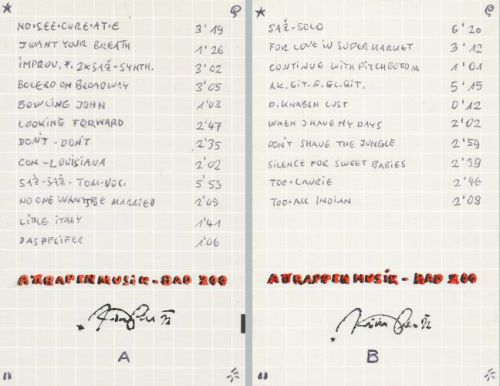 NO•SEE•CURE•AT•E 3'19
J WANT YOUR BREATH 1'26
IMPROV. F. 2XSAŽ-SYNTH. 3'02
BOLERO ON BROADWAY 3'05
BOWLING JOHN 1'03
LOOKING FORWARD 2'47
DON'T - DON'T 2'35
CON - LOUISIANA 2'02
SAŽ-SAŽ-TOM-VOC. 5'53
NO ONE WANTS BE MARRIED 2'09
LITTLE ITALY 1'41
DAS PFEIFER 1'06
ATRAPPERMUSIK - BAD 200
A
SAŽ-SOLO 6'20
FOR LOVE IN SUPERMARKET 3'12
CONTINUE WITH PITCHBOTOM 1'01
AK. GIT. & EL. GIT. 5'15
D. KNABEN LUST 0'12
WHEN J HAVE MY DAYS 2'02
DON'T SHAVE THE JUNGLE 2'59
SILENCE FOR SWEET BABIES 2'39
TOO•LAURIE 2'46
TOO•ALL INDIAN 2'08
ATRAPPERMUSIK - BAD 200
B